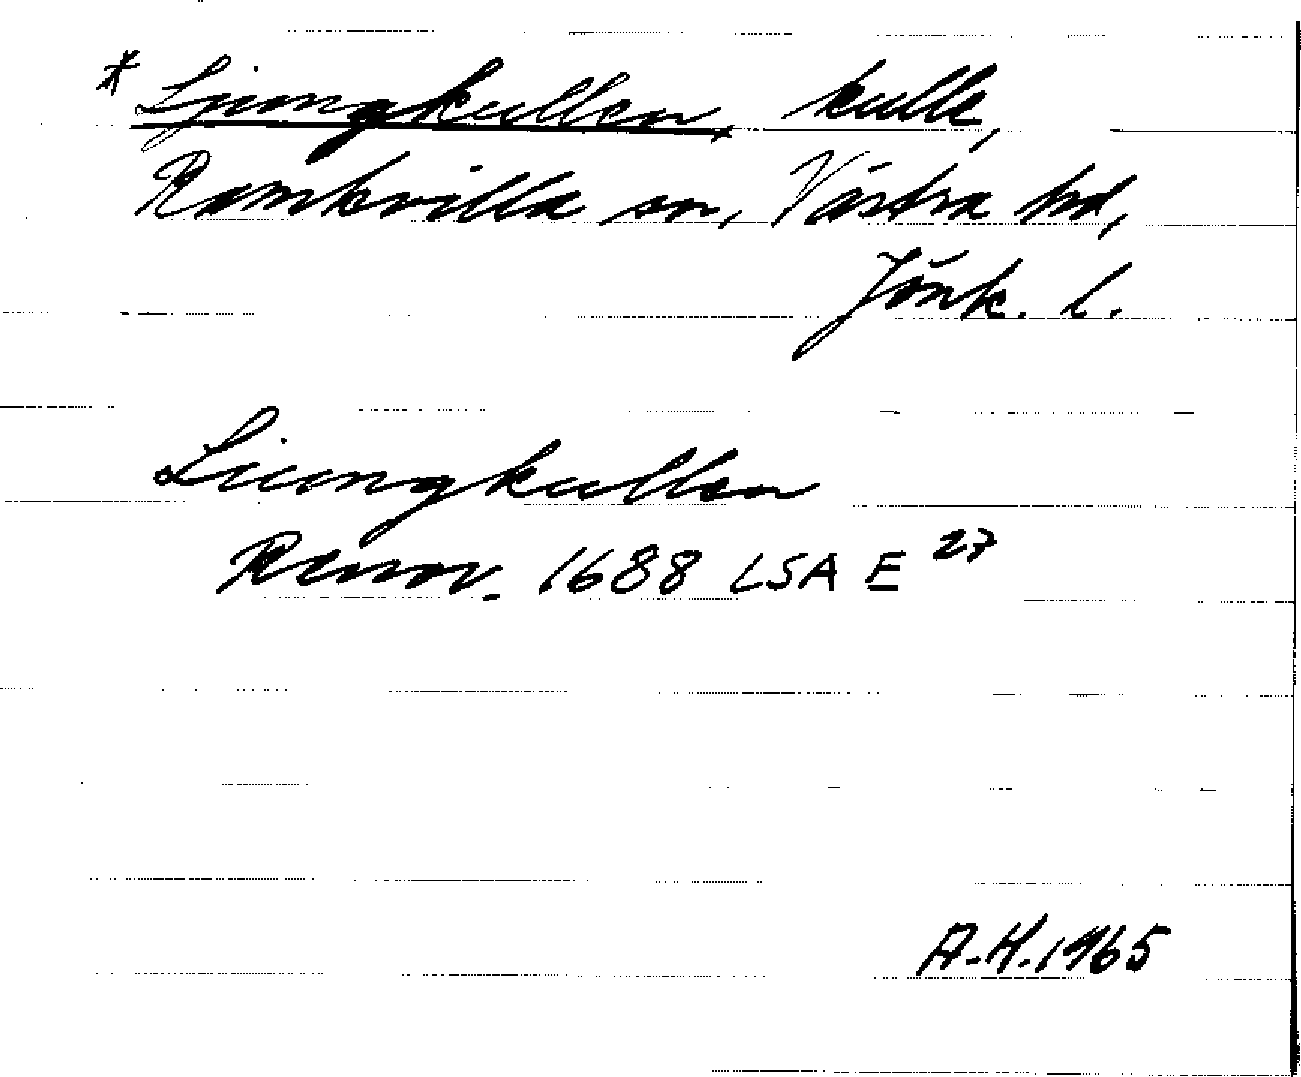 * Ljungkullen, kulle,
Ramkvilla sn, Västra hd,
Jönk. l.
Liungkullen
Renov. 1688 LSA E 27
A.K. 1965